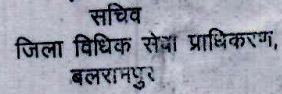 सचिव
जिला विधिक सेवा प्राधिकरण,
बलरामपुर